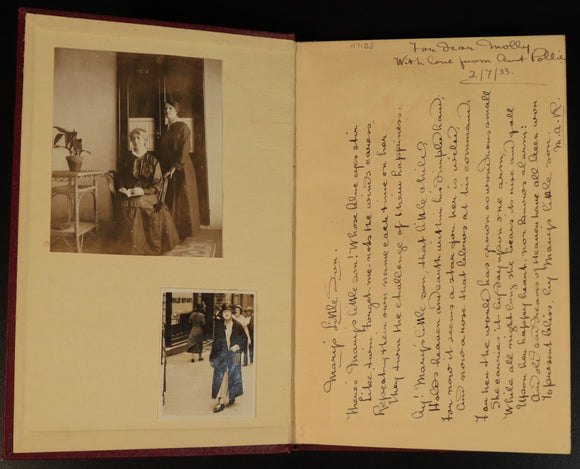 47188
For dear Molly
With love from Aunt Pollie
2/7/33.
Mary's Little Son.
Here's Mary's little son! Whose blue eyes stir
Like twin forget-me-nots the wind's caress,
Repeating their own name each time on her
They turn the challenge of their happiness.
Ay! Mary's little son, that little while,
Holds heaven and earth within his dimpled hand,
For now it seems a star for her is
And now a rose that blows at his command.
For her the world has grown so wondrous small
She carries it by day upon one arm,
While all night long she hears its rise and fall
Upon her happy heart, nor knows alarm:
And old sad dreams of Heaven have all been won
To present bliss, by Mary's little son.
M.A.R.